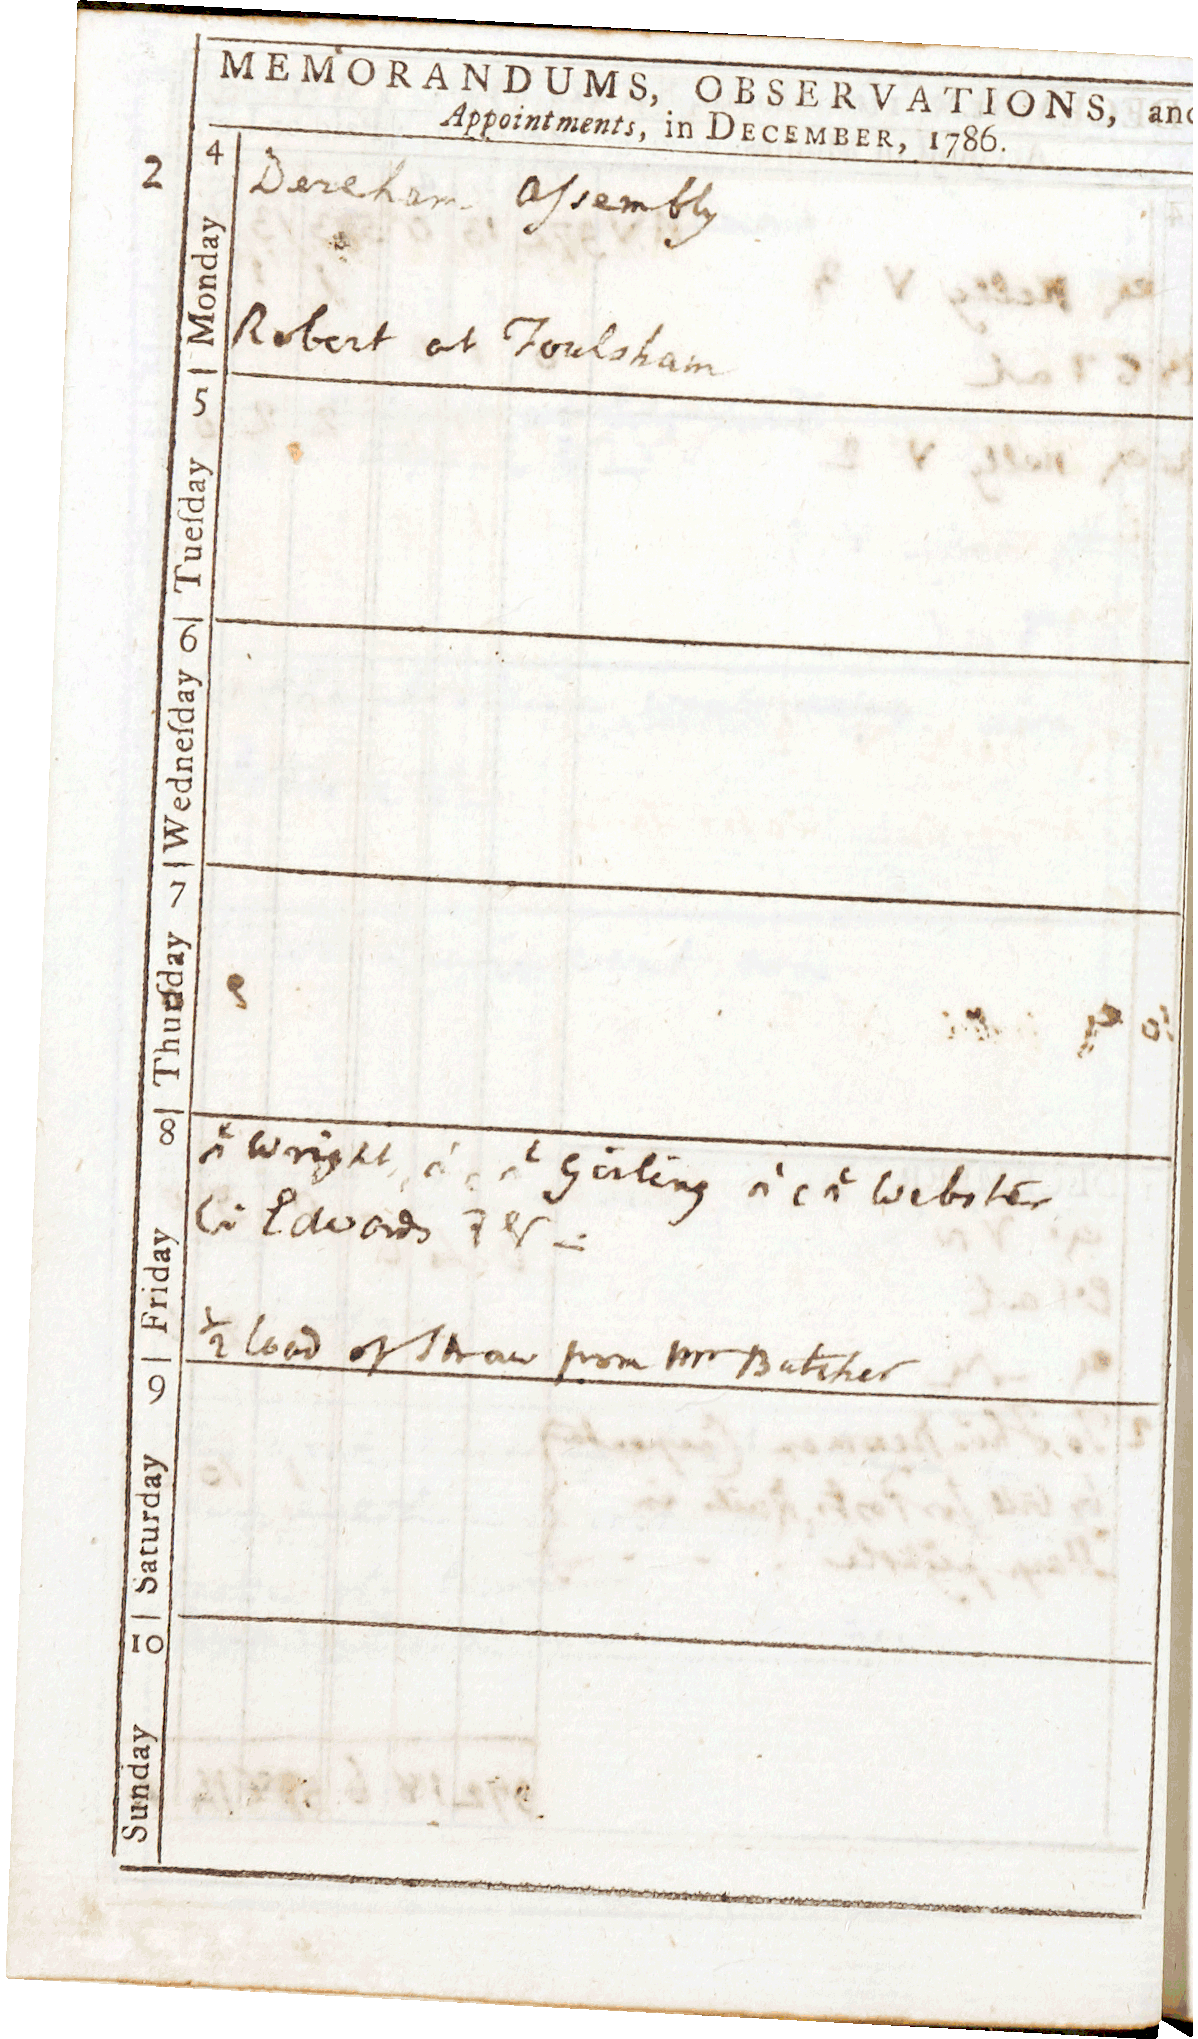 MEMORANDUMS, OBSERVATIONS, and
Appointments, in DECEMBER, 1786.
2
4 Monday
Dereham Assembly
Robert at Foulsham
5 Tueſday
6 Wedneſday
7 Thurſday
8 Friday
Wright, Girling Webster
Edwards
1/2 load of Straw from Mr Butcher
9 Saturday
10 Sunday